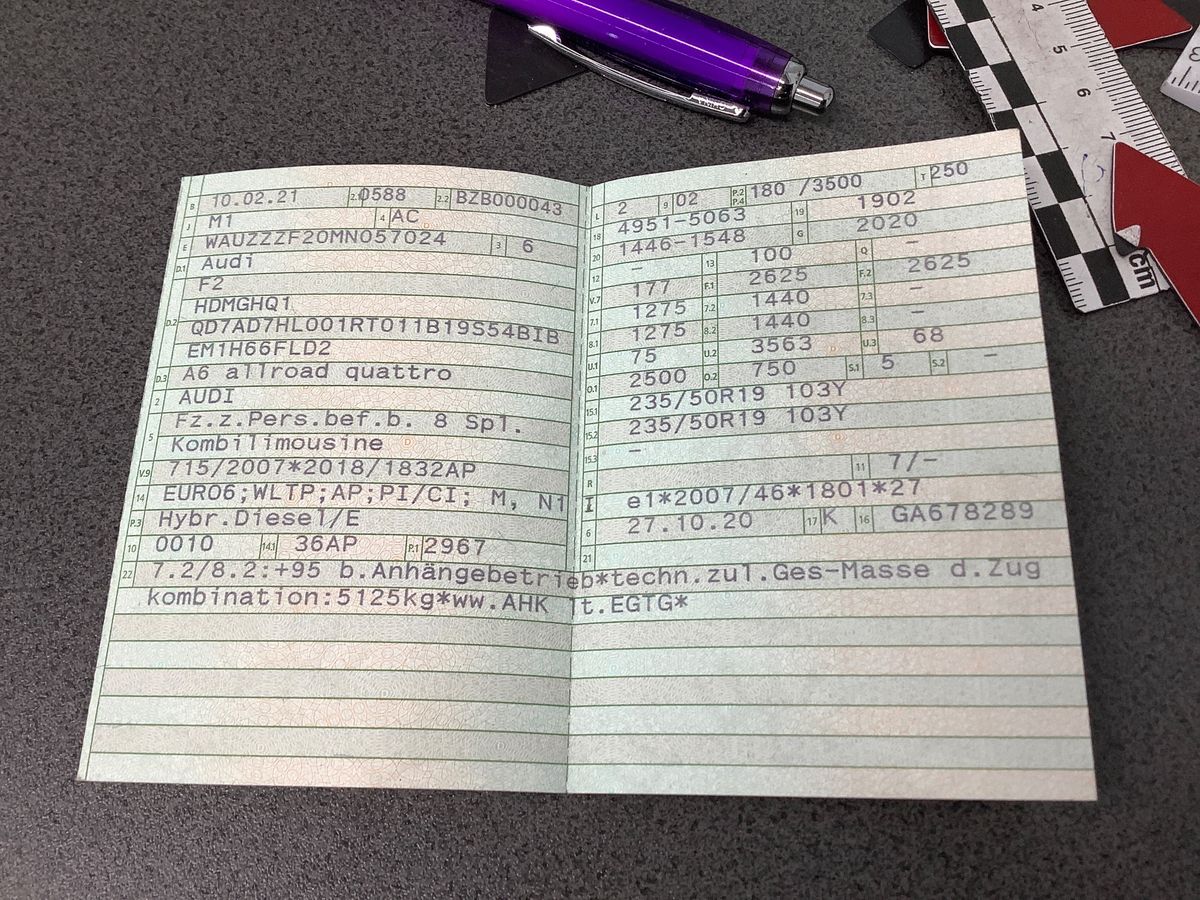 B 10.02.21 2.1 0588 2.2 BZB000043
J M1 4 AC
E WAUZZZF20MN057024 3 6
D.1 Audi
F2
D.2 HDMGHQ1
QD7AD7HL001RT011B19S54BIB
EM1H66FLD2
D.3 A6 allroad quattro
2 AUDI
5 Fz.z.Pers.bef.b. 8 Spl.
Kombilimousine
V.9 715/2007*2018/1832AP
14 EURO6;WLTP;AP;PI/CI; M, N1
P.3 Hybr.Diesel/E
10 0010 14.1 36AP P.1 2967
22 7.2/8.2:+95 b.Anhängebetrieb*techn.zul.Ges-Masse d.Zug
kombination:5125kg*ww.AHK lt.EGTG*
L 2 9 02 P.2 P.4 180 /3500 T 250
18 4951-5063 19 1902
20 1446-1548 G 2020
12 – 13 100 Q –
V.7 177 F.1 2625 F.2 2625
7.1 1275 7.2 1440 7.3 –
8.1 1275 8.2 1440 8.3 –
U.1 75 U.2 3563 U.3 68
O.1 2500 O.2 750 S.1 5 S.2 –
15.1 235/50R19 103Y
15.2 235/50R19 103Y
15.3 –
R 11 7/–
e1*2007/46*1801*27
6 27.10.20 17 K 16 GA678289
21
4
5
6
7
cm